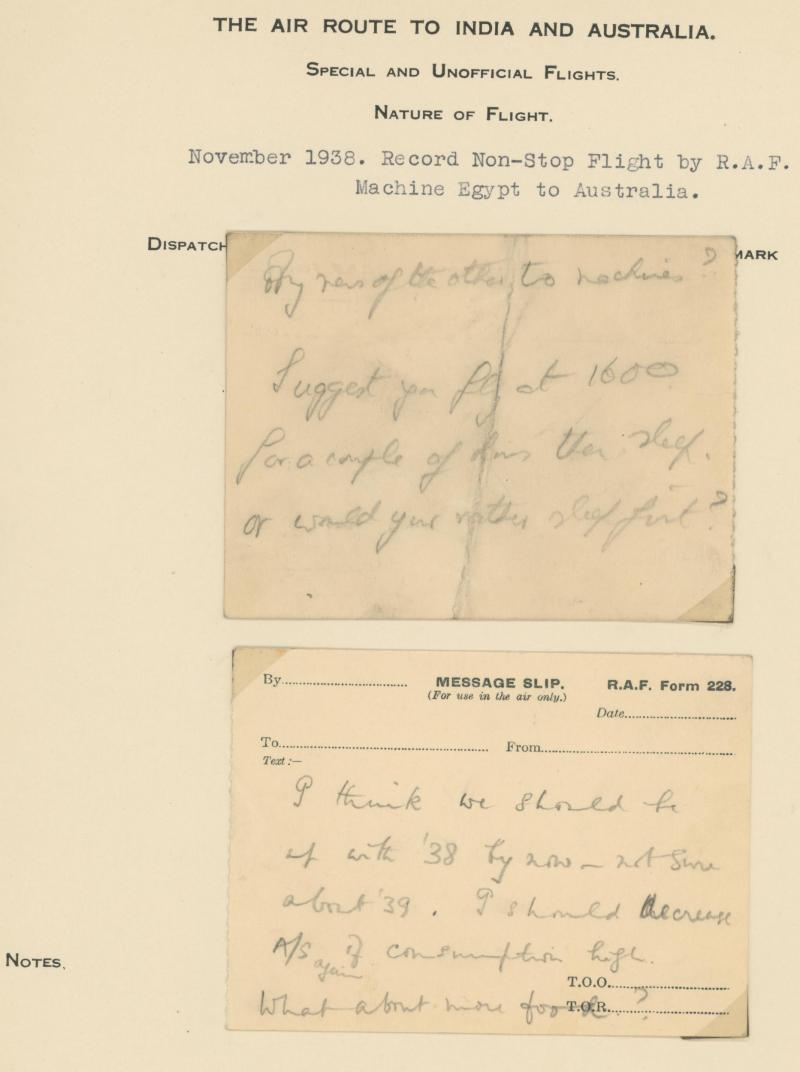 THE AIR ROUTE TO INDIA AND AUSTRALIA.
SPECIAL AND UNOFFICIAL FLIGHTS.
NATURE OF FLIGHT.
November 1938. Record Non-Stop Flight by R.A.F.
Machine Egypt to Australia.
DISPATCH MARK
Any news of the other to machines?
Suggest you fly at 1600
for a couple of hours then sleep.
or would you rather sleep first?
By MESSAGE SLIP. R.A.F. Form 228.
(For use in the air only.)
Date
To From
Text :—
I think we should be
up with '38 by now – not sure
about '39. I should decrease
A/S again if consumption high.
T.O.O.
What about more food?
T.O.R.
NOTES.